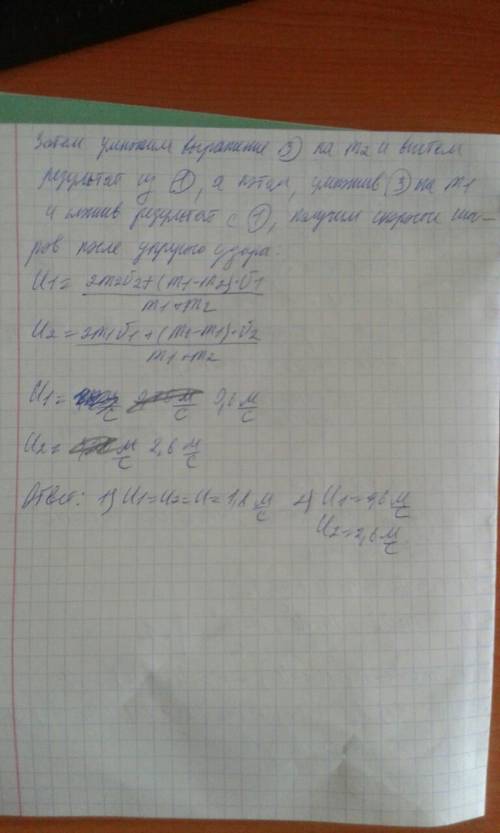 Затем умножим выражение ③ на m2 и вычтем
результат из ①, а потом, умножив ③ на m1
и сложив результат с ①, получим скорости ша-
ров после упругого удара:
U1 = (2m2V̄2 + (m1-m2)·V̄1)/(m1+m2)
U2 = (2m1V̄1 + (m2-m1)·V̄2)/(m1+m2)
U1 = 0,6 м/с
U2 = 2,6 м/с
Ответ: 1) U1=U2=U=1,8 м/с 2) U1=0,6 м/с
U2=2,6 м/с